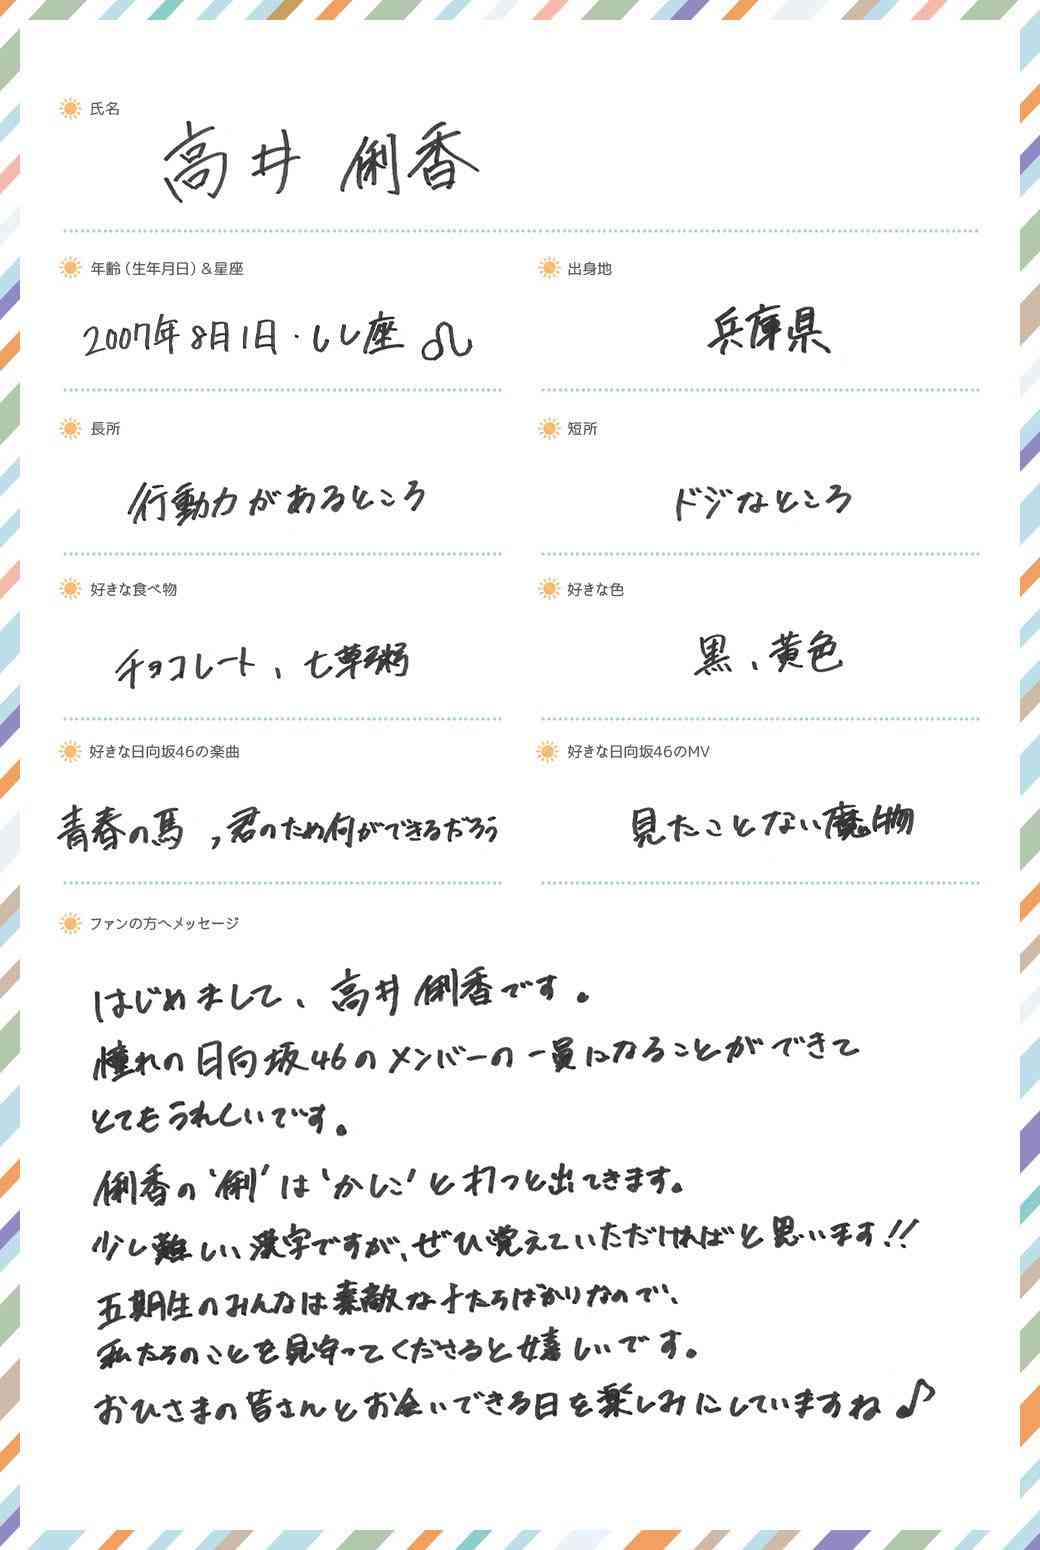 氏名
高井 俐香
年齢（生年月日）＆星座
2007年8月1日・しし座 ♌
出身地
兵庫県
長所
行動力があるところ
短所
ドジなところ
好きな食べ物
チョコレート、七草粥
好きな色
黒、黄色
好きな日向坂46の楽曲
青春の馬 ,君のため何ができるだろう
好きな日向坂46のMV
見たことない魔物
ファンの方へメッセージ
はじめまして、高井俐香です。
憧れの日向坂46のメンバーの一員になることができて
とてもうれしいです。
俐香の‘俐’は‘かしこ’と打つと出てきます。
少し難しい漢字ですが、ぜひ覚えていただければと思います!!
五期生のみんなは素敵な子たちばかりなので、
私たちのことを見守ってくださると嬉しいです。
おひさまの皆さんとお会いできる日を楽しみにしていますね♪